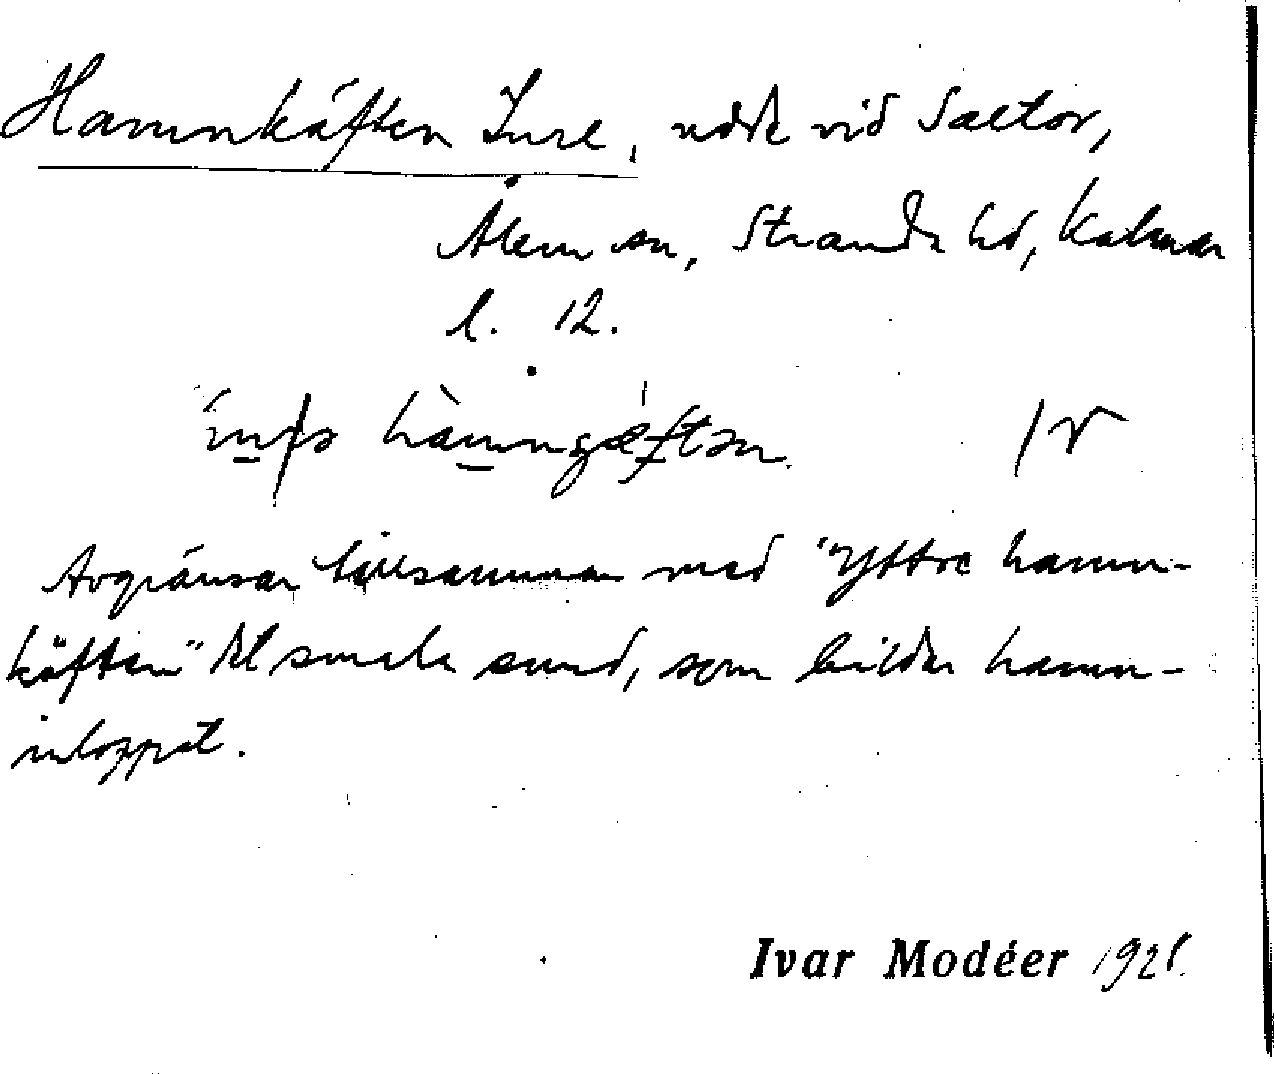 Hamnkäften Inre, udde vid Saltor,
Ålem sn, Stranda hd, Kalmar
l. 12.
Avgränsar tillsammans med "Yttre hamn-
käften" det smala sund, som bildar hamn-
inloppet.
Ivar Modéer